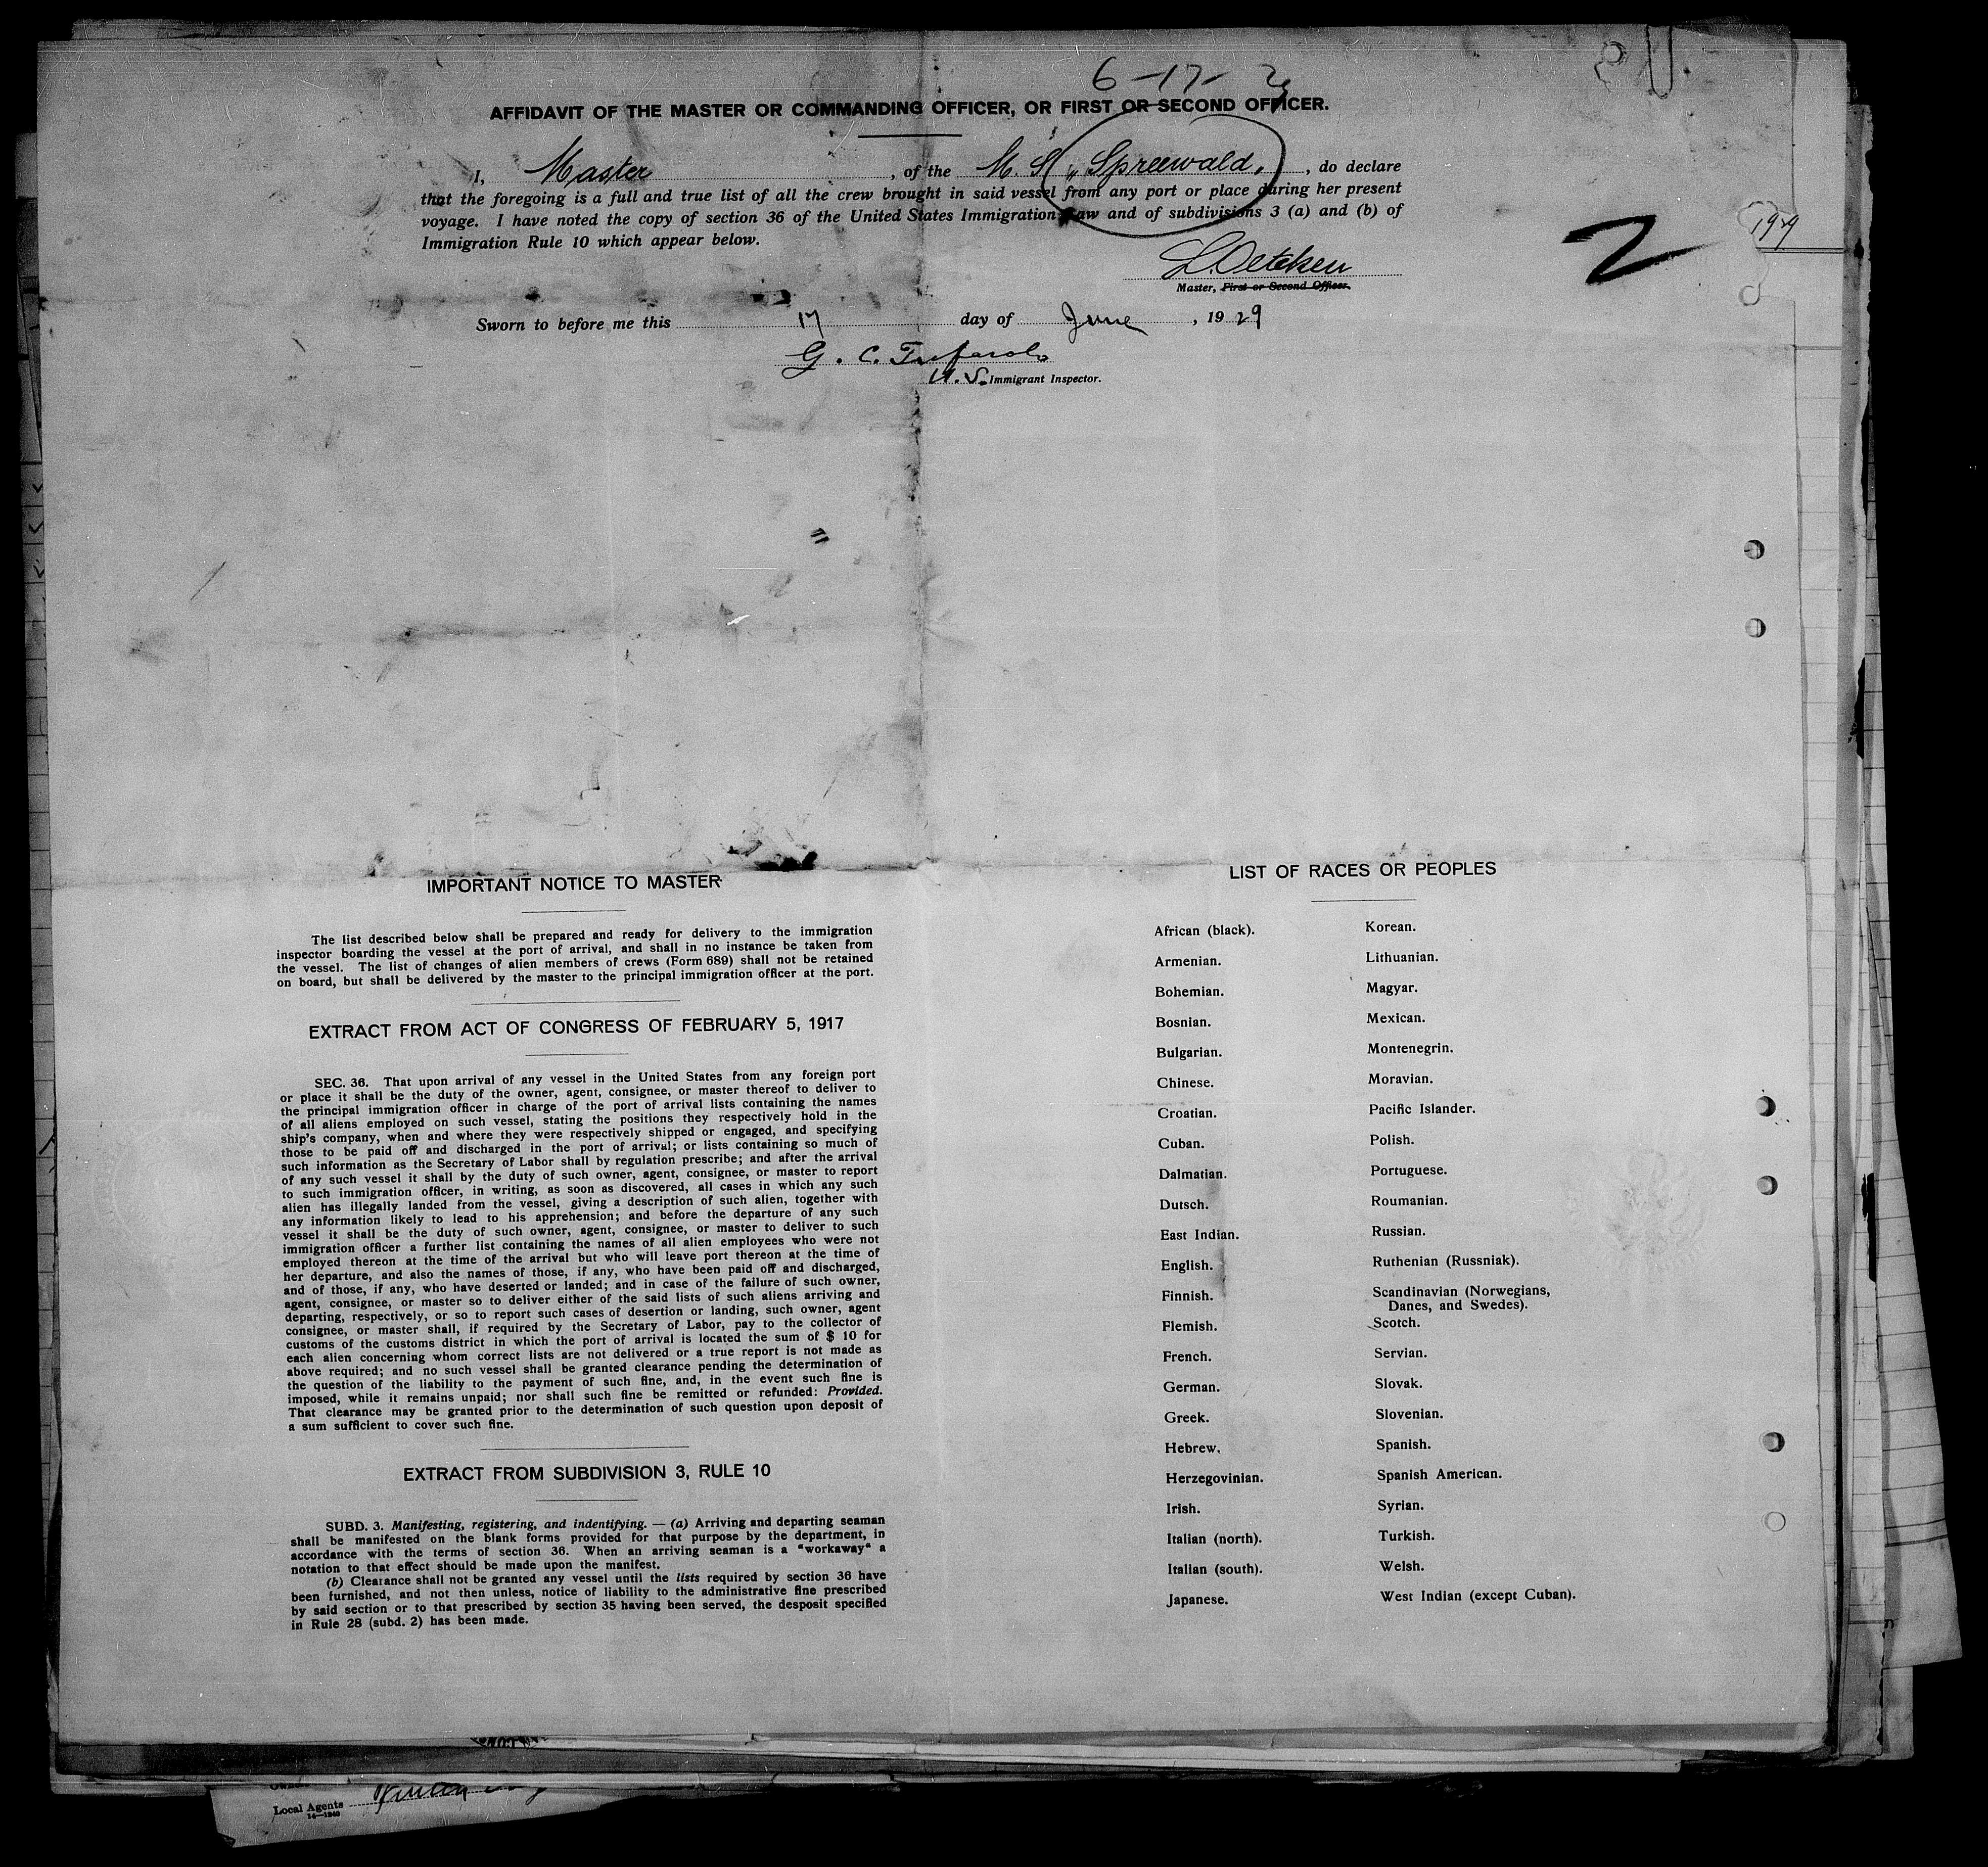 6-17-
AFFIDAVIT OF THE MASTER OR COMMANDING OFFICER, OR FIRST OR SECOND OFFICER.
I, Master, of the M. S. „Spreewald", do declare
that the foregoing is a full and true list of all the crew brought in said vessel from any port or place during her present
voyage. I have noted the copy of section 36 of the United States Immigration Law and of subdivisions 3 (a) and (b) of
Immigration Rule 10 which appear below.
2
L. Oetken
Master, First or Second Officer.
Sworn to before me this 17 day of June, 1929
G. C.
U. S. Immigrant Inspector.
IMPORTANT NOTICE TO MASTER
The list described below shall be prepared and ready for delivery to the immigration
inspector boarding the vessel at the port of arrival, and shall in no instance be taken from
the vessel. The list of changes of alien members of crews (Form 689) shall not be retained
on board, but shall be delivered by the master to the principal immigration officer at the port.
EXTRACT FROM ACT OF CONGRESS OF FEBRUARY 5, 1917
SEC. 36. That upon arrival of any vessel in the United States from any foreign port
or place it shall be the duty of the owner, agent, consignee, or master thereof to deliver to
the principal immigration officer in charge of the port of arrival lists containing the names
of all aliens employed on such vessel, stating the positions they respectively hold in the
ship's company, when and where they were respectively shipped or engaged, and specifying
those to be paid off and discharged in the port of arrival; or lists containing so much of
such information as the Secretary of Labor shall by regulation prescribe; and after the arrival
of any such vessel it shall by the duty of such owner, agent, consignee, or master to report
to such immigration officer, in writing, as soon as discovered, all cases in which any such
alien has illegally landed from the vessel, giving a description of such alien, together with
any information likely to lead to his apprehension; and before the departure of any such
vessel it shall be the duty of such owner, agent, consignee, or master to deliver to such
immigration officer a further list containing the names of all alien employees who were not
employed thereon at the time of the arrival but who will leave port thereon at the time of
her departure, and also the names of those, if any, who have been paid off and discharged,
and of those, if any, who have deserted or landed; and in case of the failure of such owner,
agent, consignee, or master so to deliver either of the said lists of such aliens arriving and
departing, respectively, or so to report such cases of desertion or landing, such owner, agent
consignee, or master shall, if required by the Secretary of Labor, pay to the collector of
customs of the customs district in which the port of arrival is located the sum of $ 10 for
each alien concerning whom correct lists are not delivered or a true report is not made as
above required; and no such vessel shall be granted clearance pending the determination of
the question of the liability to the payment of such fine, and, in the event such fine is
imposed, while it remains unpaid; nor shall such fine be remitted or refunded: Provided.
That clearance may be granted prior to the determination of such question upon deposit of
a sum sufficient to cover such fine.
EXTRACT FROM SUBDIVISION 3, RULE 10
SUBD. 3. Manifesting, registering, and indentifying. — (a) Arriving and departing seaman
shall be manifested on the blank forms provided for that purpose by the department, in
accordance with the terms of section 36. When an arriving seaman is a "workaway" a
notation to that effect should be made upon the manifest.
(b) Clearance shall not be granted any vessel until the lists required by section 36 have
been furnished, and not then unless, notice of liability to the administrative fine prescribed
by said section or to that prescribed by section 35 having been served, the desposit specified
in Rule 28 (subd. 2) has been made.
LIST OF RACES OR PEOPLES
African (black).
Armenian.
Bohemian.
Bosnian.
Bulgarian.
Chinese.
Croatian.
Cuban.
Dalmatian.
Dutsch.
East Indian.
English.
Finnish.
Flemish.
French.
German.
Greek.
Hebrew.
Herzegovinian.
Irish.
Italian (north).
Italian (south).
Japanese.
Korean.
Lithuanian.
Magyar.
Mexican.
Montenegrin.
Moravian.
Pacific Islander.
Polish.
Portuguese.
Roumanian.
Russian.
Ruthenian (Russniak).
Scandinavian (Norwegians,
Danes, and Swedes).
Scotch.
Servian.
Slovak.
Slovenian.
Spanish.
Spanish American.
Syrian.
Turkish.
Welsh.
West Indian (except Cuban).
Local Agents